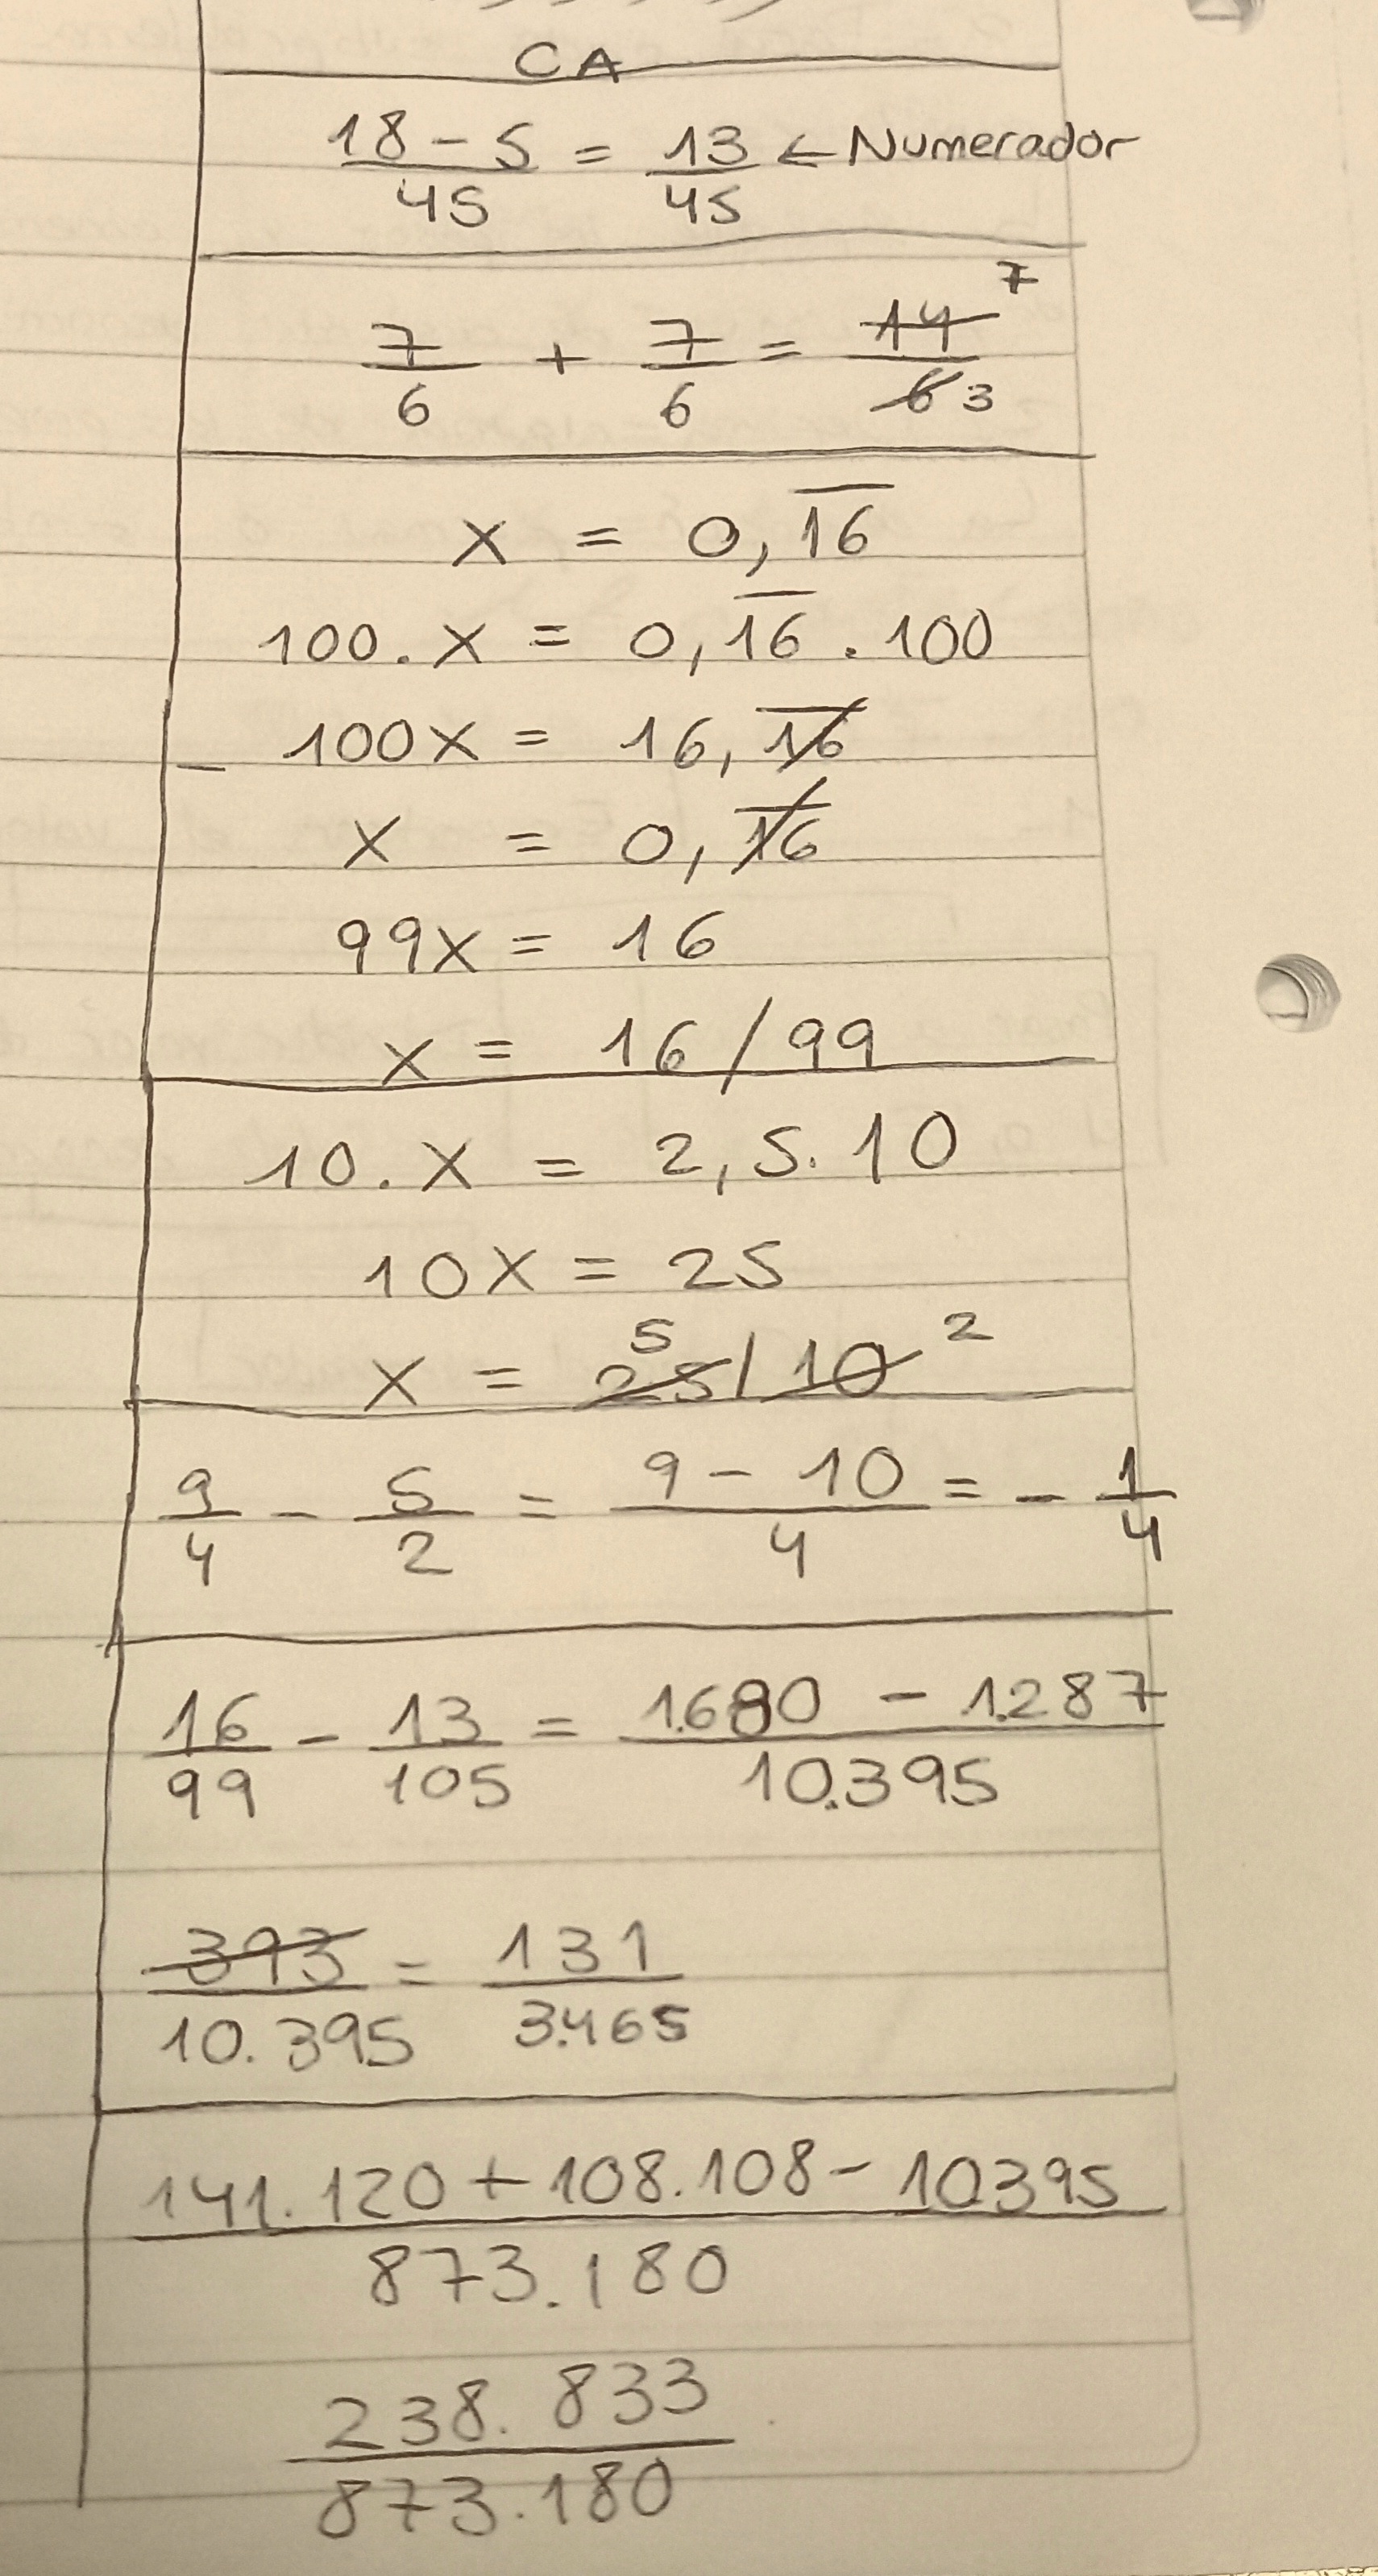 CA
18 - 5 / 45 = 13 / 45 ← Numerador
7/6 + 7/6 = 14/6 7/3
x = 0,1̅6̅
100 . x = 0,1̅6̅ . 100
- 100x = 16,1̅6̅
x = 0,1̅6̅
99x = 16
x = 16/99
10 . x = 2,5 . 10
10x = 25
x = 25/10 5 2
9/4 - 5/2 = 9 - 10 / 4 = - 1/4
16/99 - 13/105 = 1.680 - 1.287 / 10.395
393 / 10.395 = 131 / 3.465
141.120 + 108.108 - 10.395 / 873.180
238.833 / 873.180